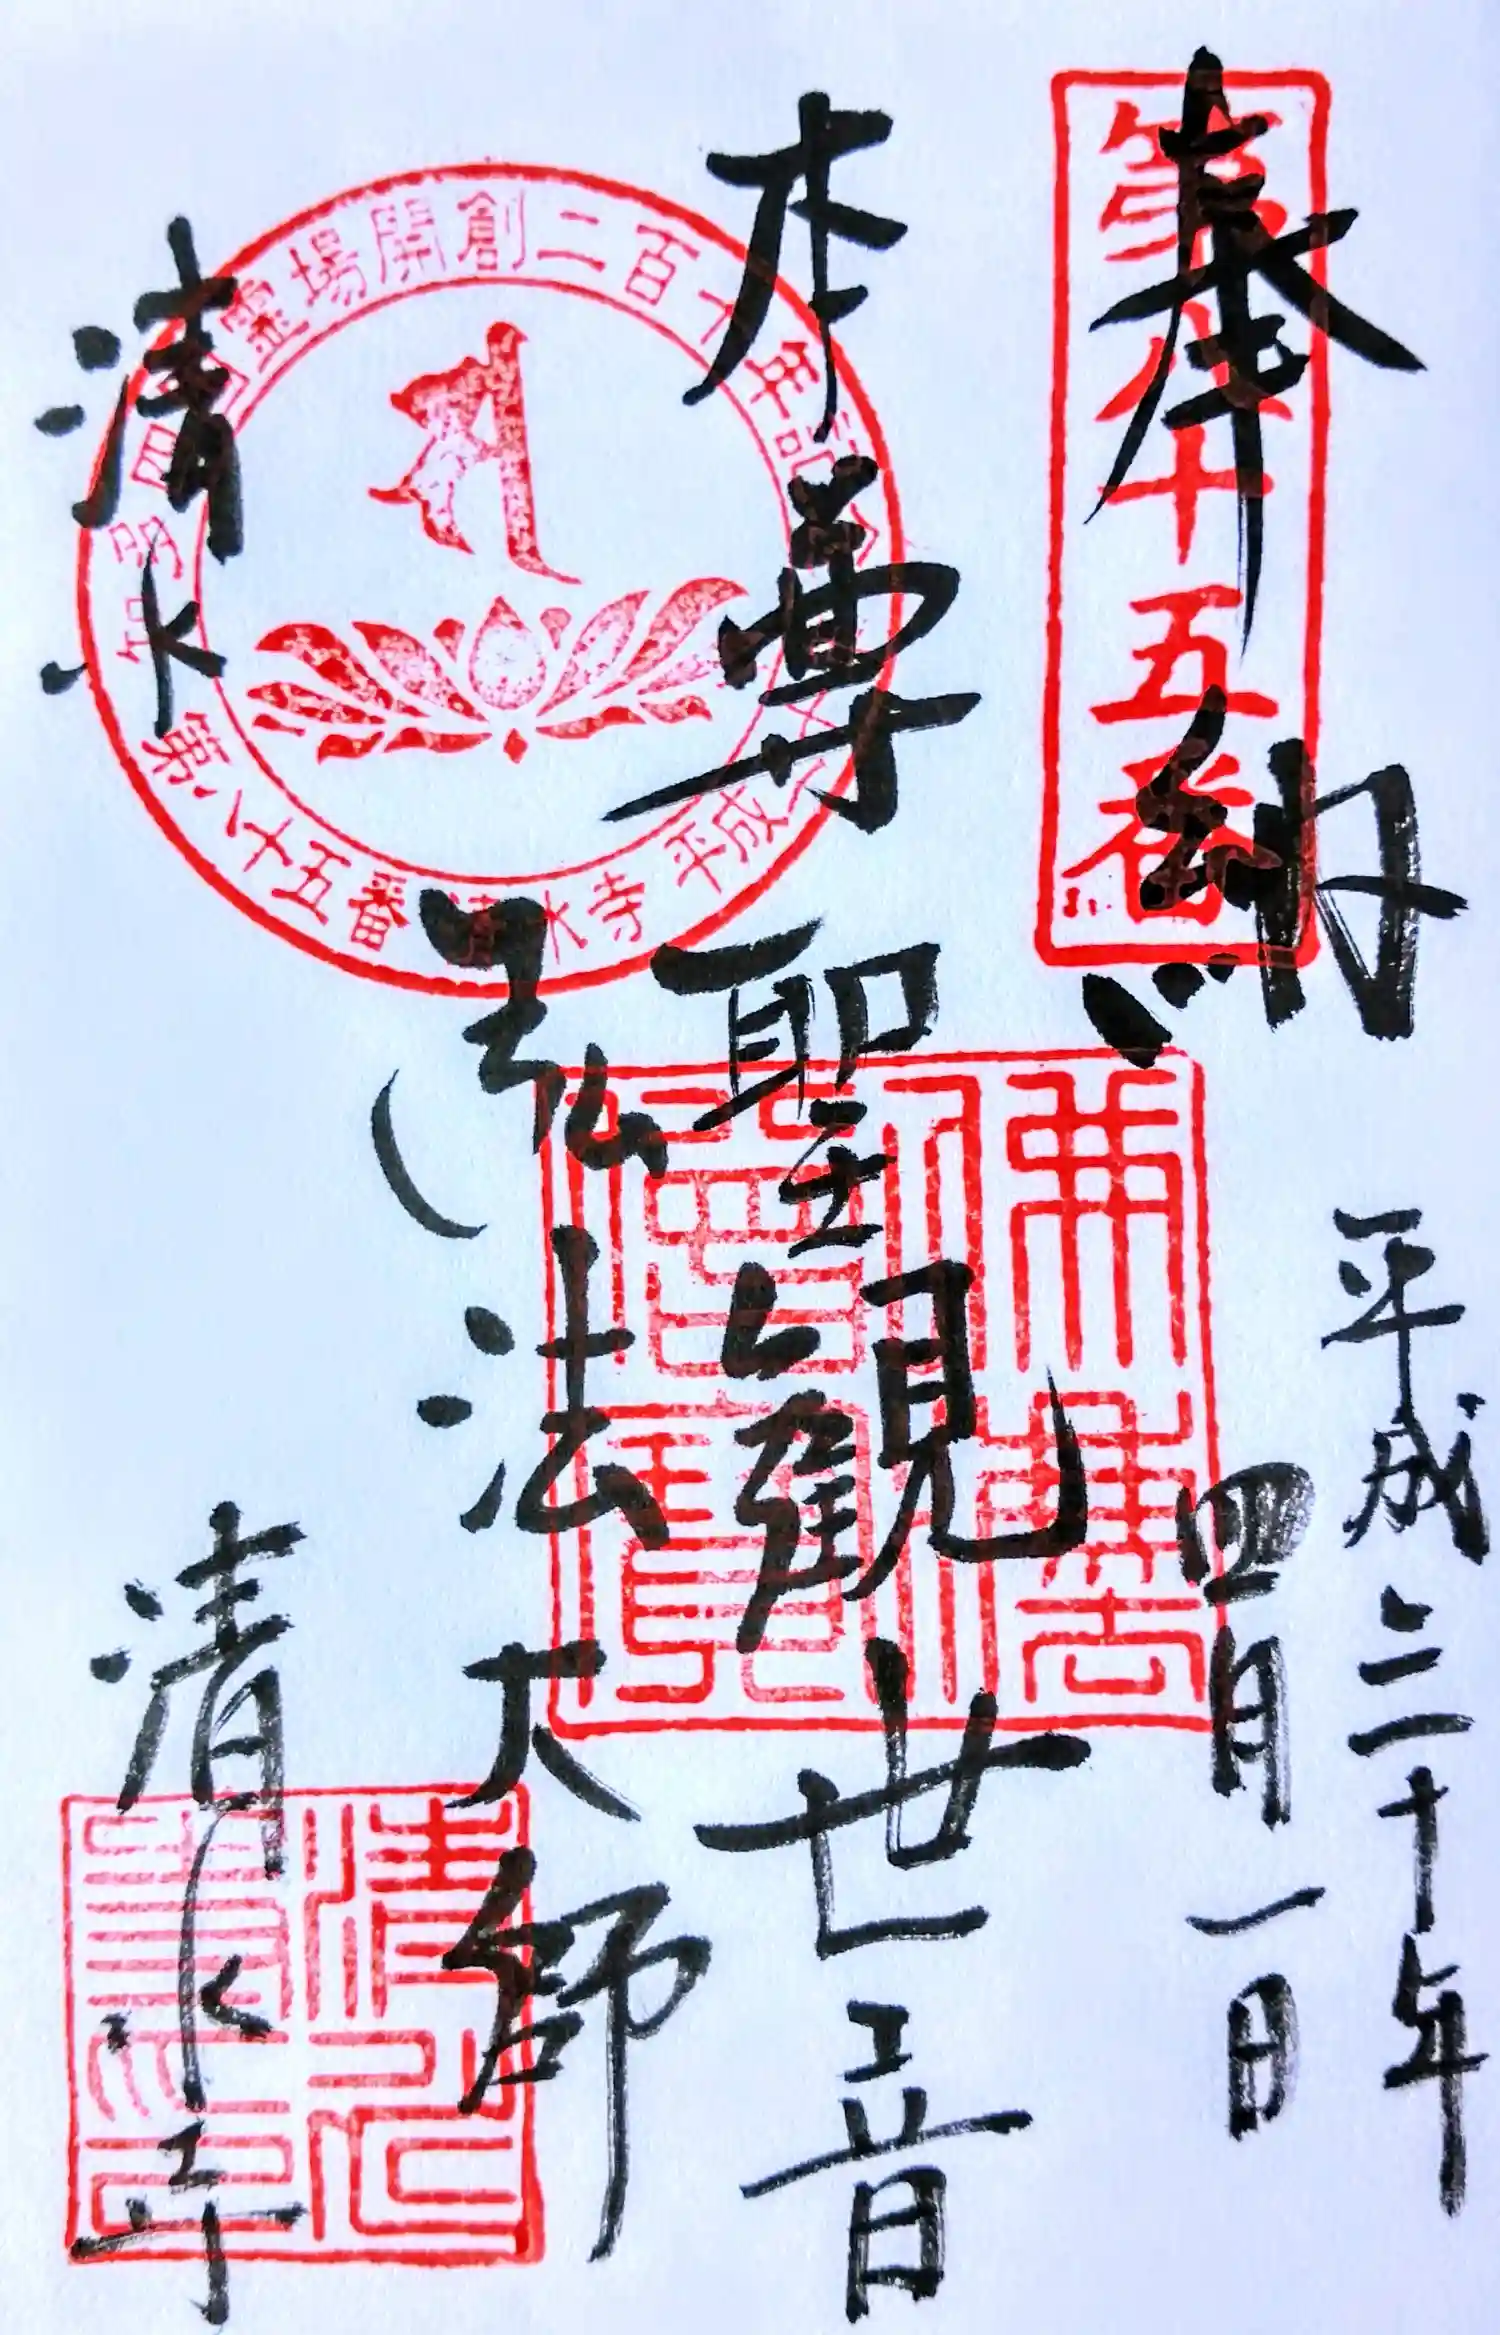 奉納
第八十五番
平成三十年
四月一日
本尊聖観世音
弘法大師
清水
清水寺
霊場開創二百十年
第八十五番 清水寺 平成
佛法僧寶